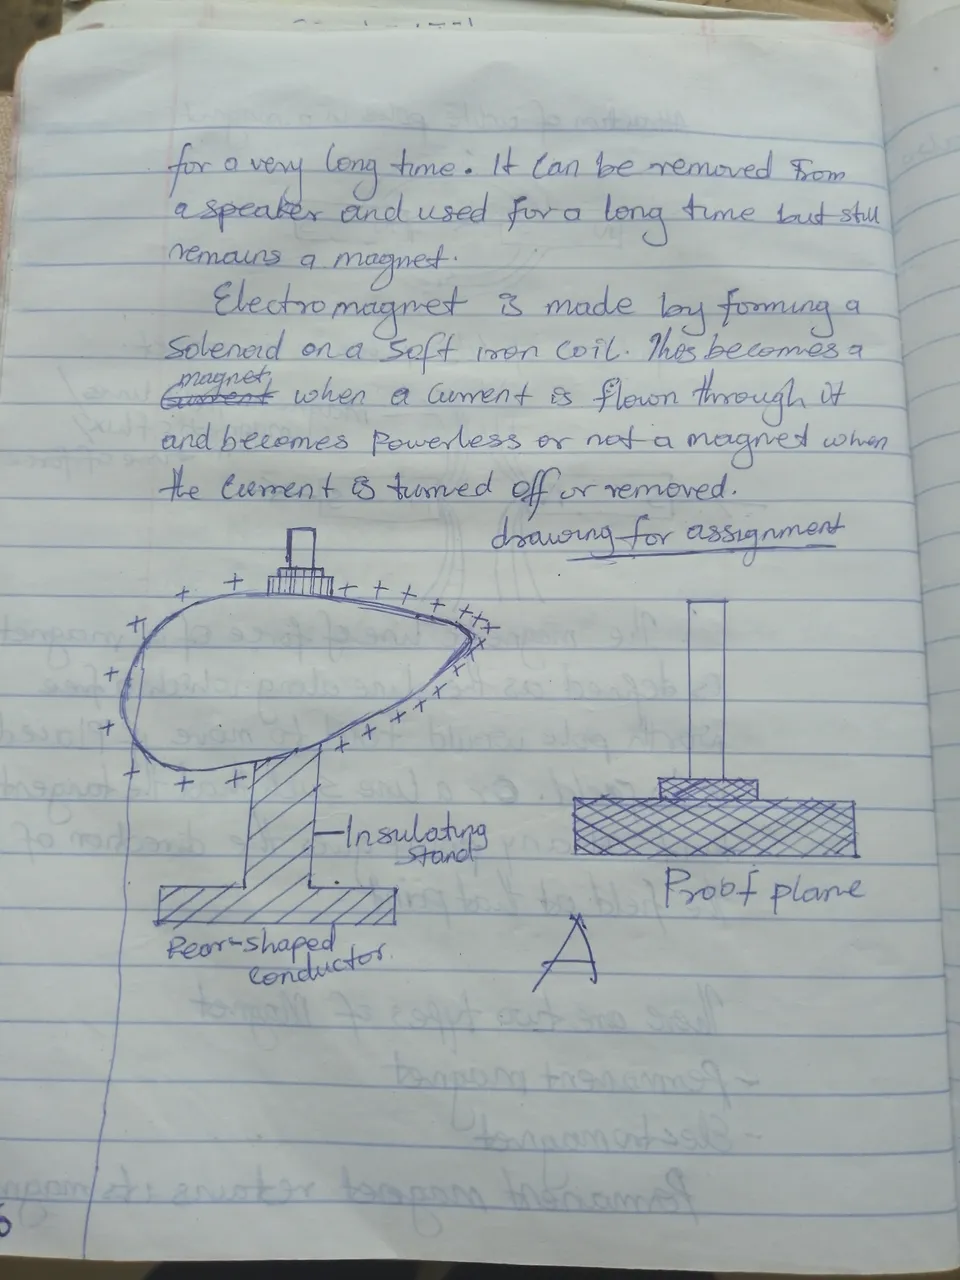 for a very long time. It can be removed from
a speaker and used for a long time but still
remains a magnet.
Electromagnet is made by forming a
Solenoid on a soft iron coil. This becomes a
magnet when a current is flown through it
and becomes powerless or not a magnet when
the current is turned off or removed.
drawing for assignment
Insulating
stand
Proof plane
Pear-shaped
conductor.
A